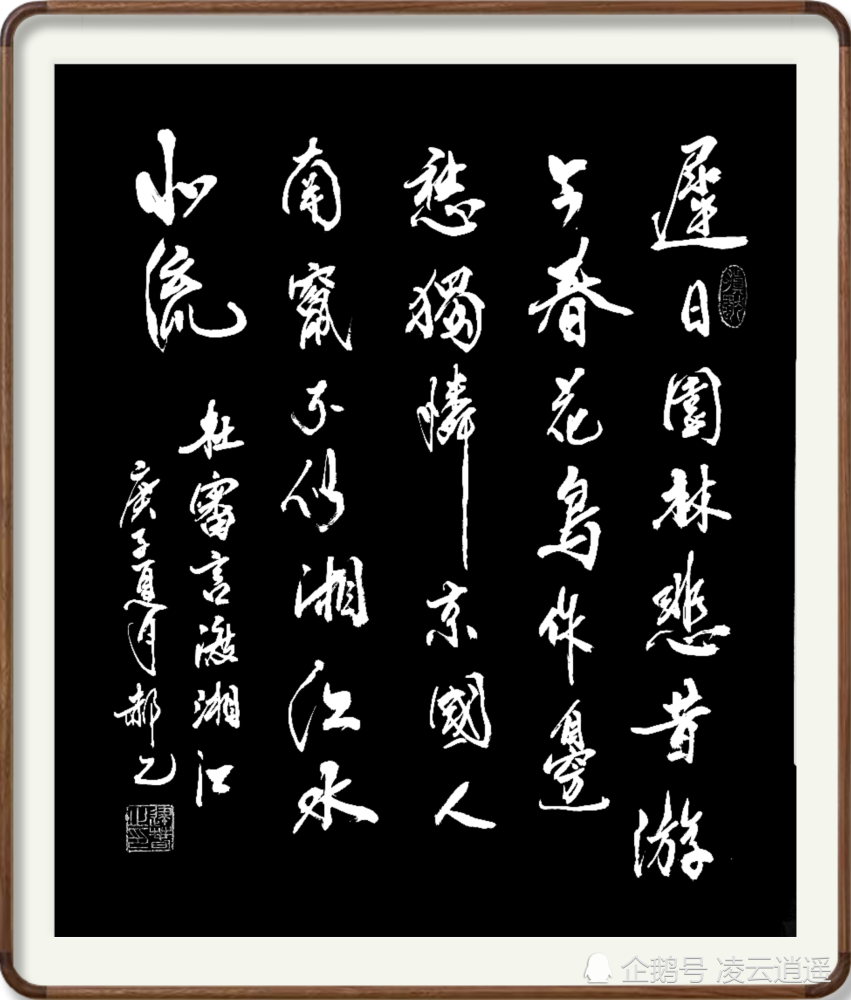 遲日園林悲昔游
今春花鳥作邊
愁獨憐京國人
南竄不似湘江水
北流
杜審言渡湘江
庚子夏月郝乙
企鹅号 凌云逍遥